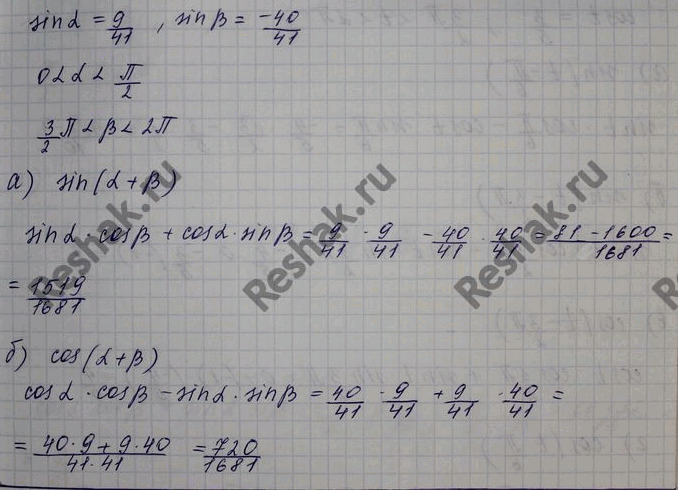 sin α = 9/41 , sin β = -40/41
0 < α < π/2
3/2 π < β < 2π
а) sin(α + β)
sin α · cos β + cos α · sin β = 9/41 · 9/41 - 40/41 · 40/41 = 81 - 1600/1681 =
= 1519/1681
б) cos(α + β)
cos α · cos β - sin α · sin β = 40/41 · 9/41 + 9/41 · 40/41 =
= 40·9 + 9·40/41·41 = 720/1681
Reshak.ru
Reshak.ru
Reshak.ru